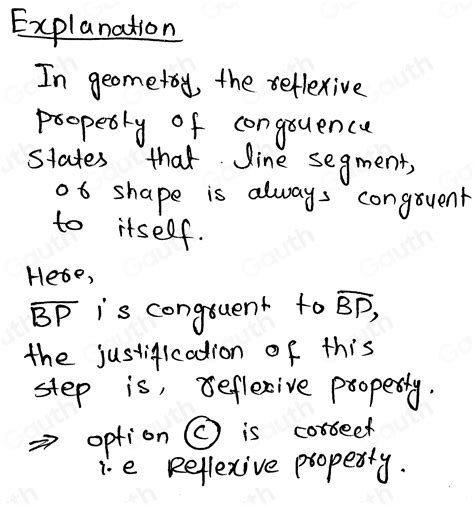 Explanation
In geometry, the reflexive
property of congruence
states that line segment,
or shape is always congruent
to itself.
Here,
BP is congruent to BP,
the justification of this
step is, reflexive property.
⇒ option Ⓒ is correct
i.e Reflexive property.